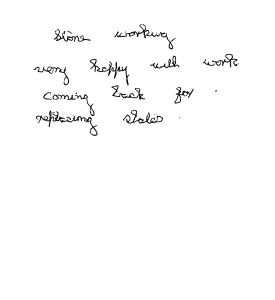 stone working
very happy with work
coming back for .
replacing slates .